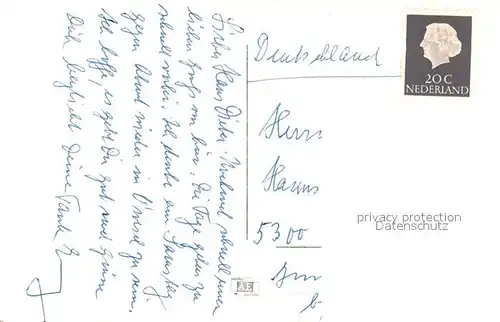 Lieber Hans Dieter. Nochmal schnell einen
lieben Gruß von hier. Die Tage gehen zu
schnell vorbei. Ich denke am Samstag
gegen Abend wieder in zu sein.
Ich hoffe, es geht Dir gut und Grüße
Dich herzlichst Deine Tante
Deutschland
Herrn
Hanns
5300
20 C
NEDERLAND
privacy protection
Datenschutz